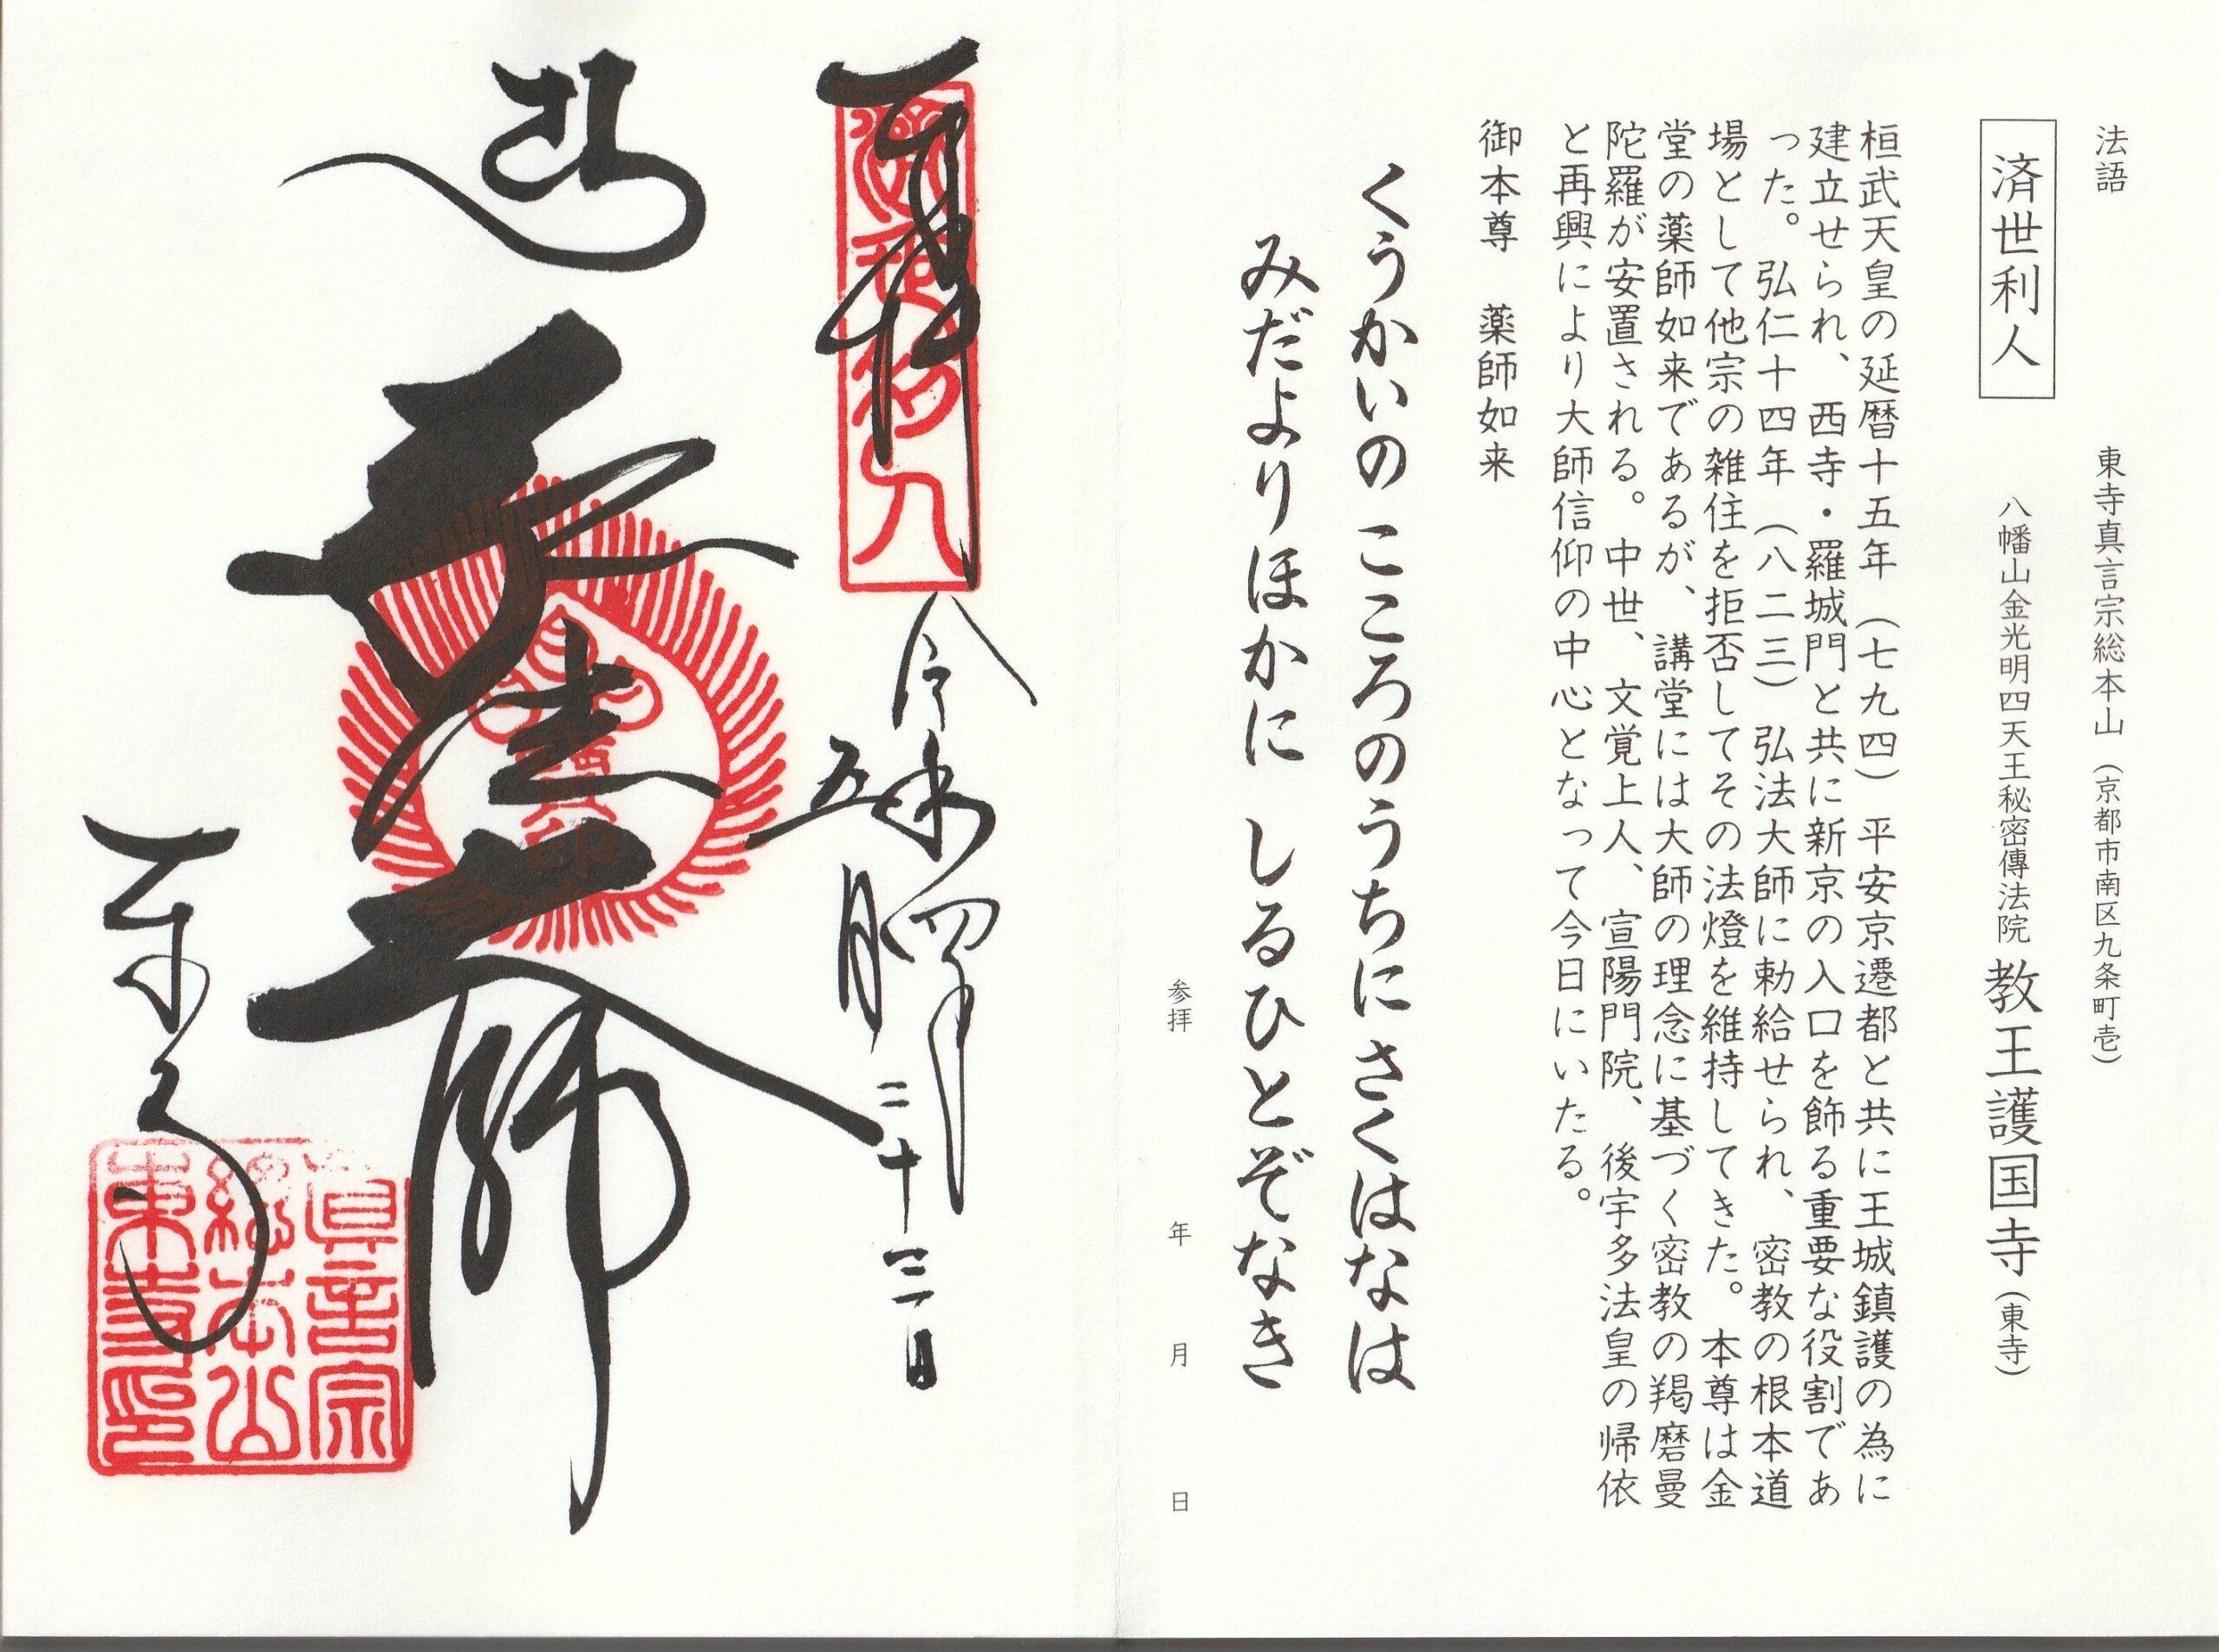 法語
東寺真言宗総本山（京都市南区九条町壱）
済世利人
八幡山金光明四天王秘密傳法院 教王護国寺（東寺）
桓武天皇の延暦十五年（七九四）平安京遷都と共に王城鎮護の為に
建立せられ、西寺・羅城門と共に新京の入口を飾る重要な役割であ
った。弘仁十四年（八二三）弘法大師に勅給せられ、密教の根本道
場として他宗の雑住を拒否してその法燈を維持してきた。本尊は金
堂の薬師如来であるが、講堂には大師の理念に基づく密教の羯磨曼
陀羅が安置される。中世、文覚上人、宣陽門院、後宇多法皇の帰依
と再興により大師信仰の中心となって今日にいたる。
御本尊　薬師如来
くうかいの こころのうちにさくはなは
みだよりほかに しるひとぞなき
参拝　年　月　日
奉拝
済世利人
令和四年
五月二十三日
弘法大師
東寺
真言宗
総本山
東寺印